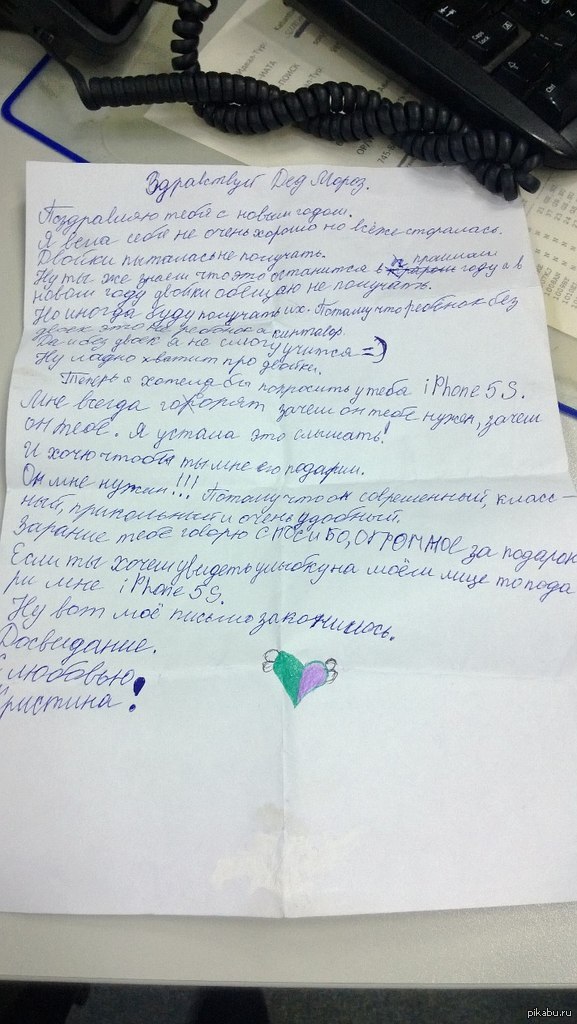 Здравствуй Дед Мороз.
Поздравляю тебя с новым годом.
Я вела себя не очень хорошо но всёже старалась.
Двойки пыталась не получать.
Ну ты же знаеш что это останится в прошлом году а в
новом году двойки обещаю не получать.
Но иногда буду получать их. Потому что ребёнок без
двоек это не ребёнок а кинтавр.
Да и без двоек я не смогу учится =)
Ну ладно хватит про двойки.
Теперь я хотела бы попросить у тебя iPhone 5S.
Мне всегда говорят зачем он тебе нужен, зачем
он тебе. Я устала это слышать!
И хочю чтобы ты мне его подарил.
Он мне нужин!!! Потому что он современный, класс-
ный, прикольный и очень удобный.
Зарание тебе говорю СПОСИБО, ОГРОМНОЕ за подарок
Если ты хочеш увидеть улыбку на моём лице то пода
ри мне iPhone 5S.
Ну вот моё письмо закончилось.
Досвидание.
С любовью
Кристина!
Caps Lock
pikabu.ru